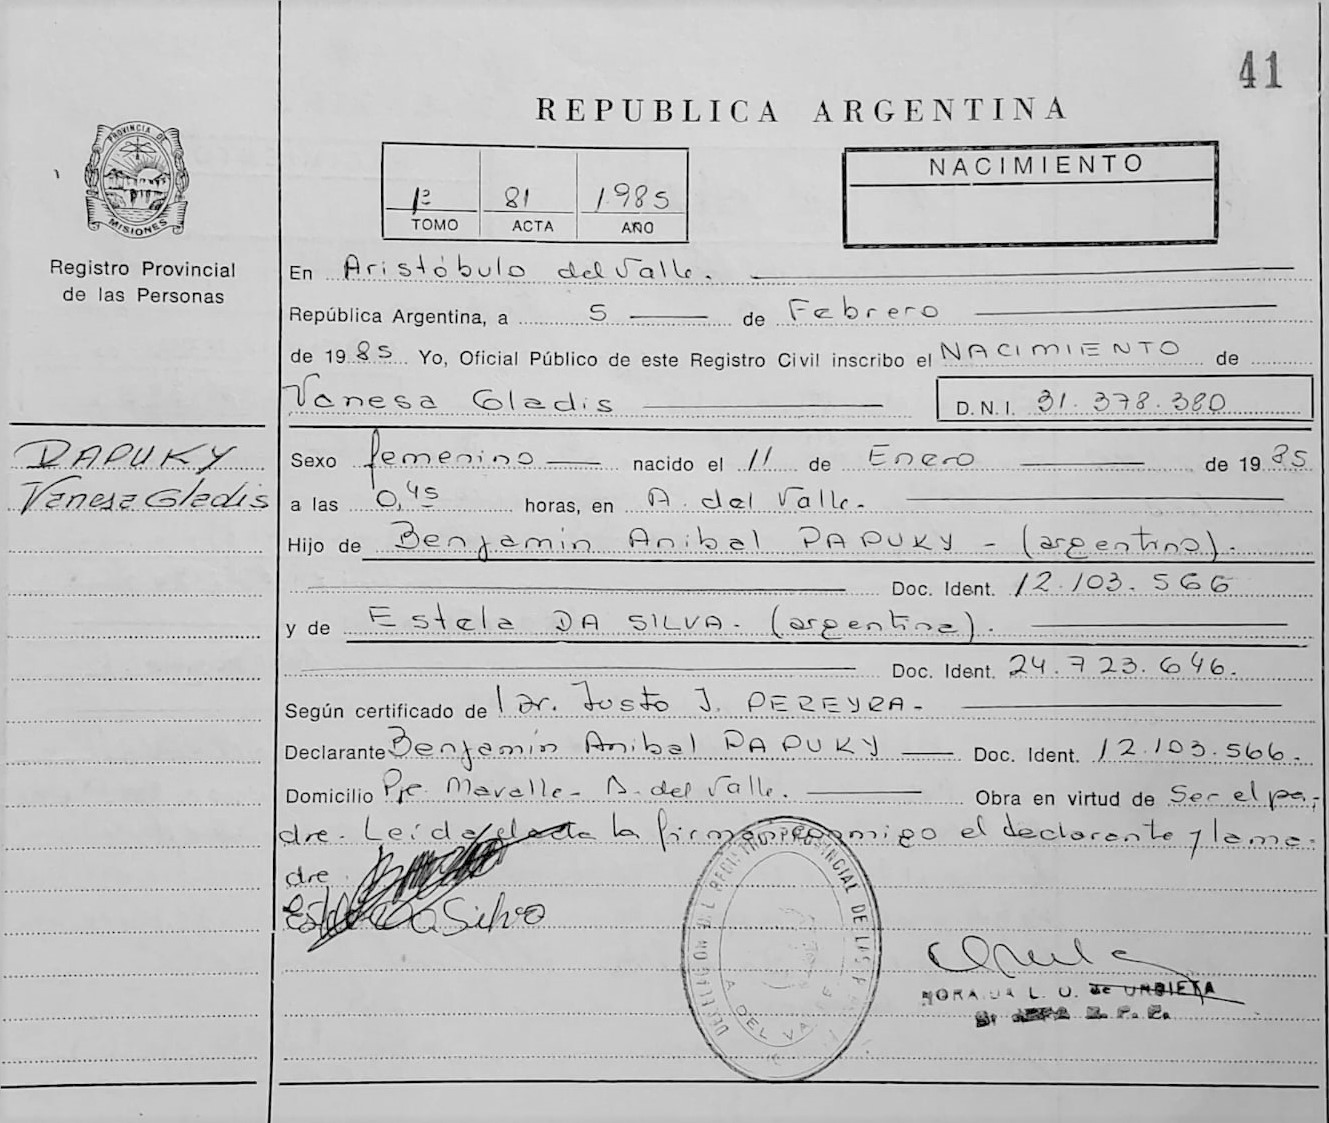 41
REPUBLICA ARGENTINA
PROVINCIA DE
MISIONES
Registro Provincial
de las Personas
1º 81 1985
TOMO ACTA AÑO
NACIMIENTO
En Aristóbulo del Valle.
República Argentina, a 5 de Febrero
de 1985 Yo, Oficial Público de este Registro Civil inscribo el NACIMIENTO de
Vanesa Gladis D.N.I. 31.378.380
DAPUKY
Vanesa Gladis
Sexo femenino nacido el 11 de Enero de 1985
a las 0,45 horas, en A. del Valle.
Hijo de Benjamin Anibal DAPUKY - (argentino).
Doc. Ident. 12.103.566
y de Estela DA SILVA. (argentina).
Doc. Ident. 24.723.646.
Según certificado de Dr. Justo J. PEREYRA.
Declarante Benjamín Anibal DAPUKY Doc. Ident. 12.103.566.
Domicilio Pje. Mavalle - A. del Valle. Obra en virtud de Ser el pa-
dre. Leída el acta la firman conmigo el declarante y la ma-
dre.
Da Silva
DELEGACION DEL REGISTRO PROVINCIAL DE LAS
A. DEL VALLE
L. U. de URBIETA